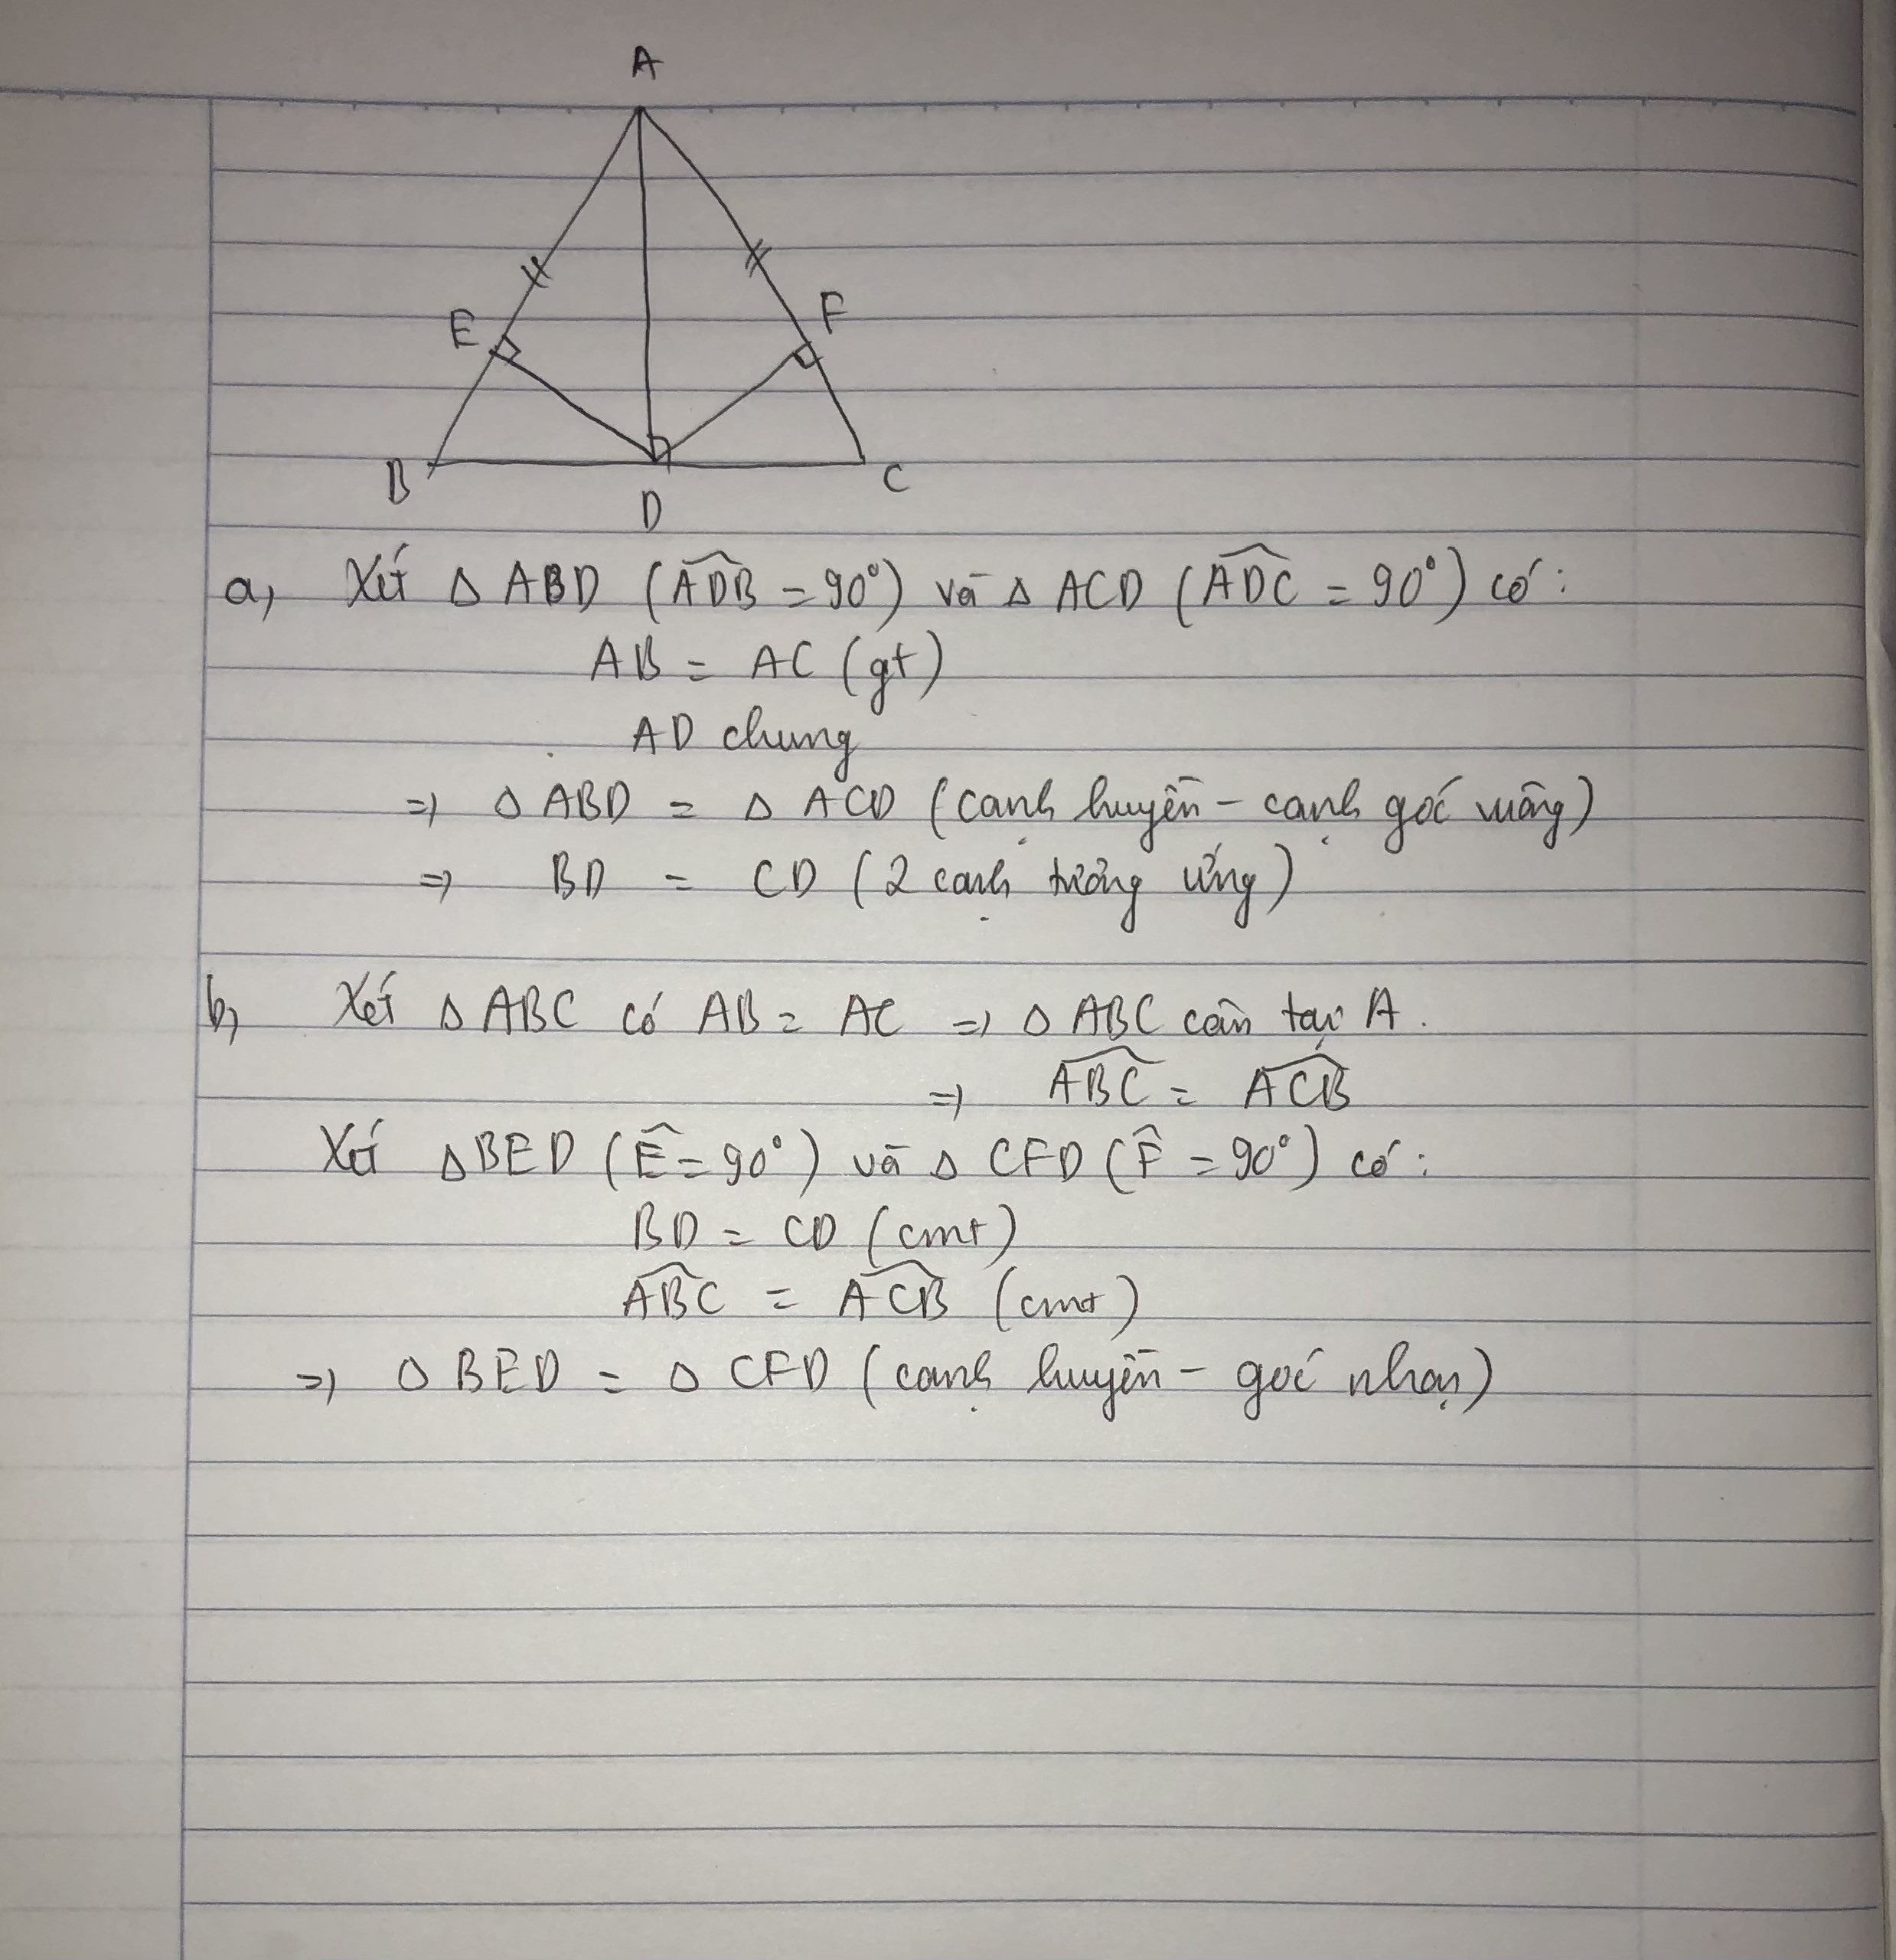 A
E
F
B
C
D
a, Xét Δ ABD (ADB̂ = 90°) và Δ ACD (ADĈ = 90°) có:
AB = AC (gt)
AD chung
=> Δ ABD = Δ ACD (cạnh huyền - cạnh góc vuông)
=> BD = CD (2 cạnh tương ứng)
b, Xét Δ ABC có AB = AC => Δ ABC cân tại A.
=> ABĈ = ACB̂
Xét Δ BED (Ê = 90°) và Δ CFD (F̂ = 90°) có:
BD = CD (cmt)
ABĈ = ACB̂ (cmt)
=> Δ BED = Δ CFD (cạnh huyền - góc nhọn)